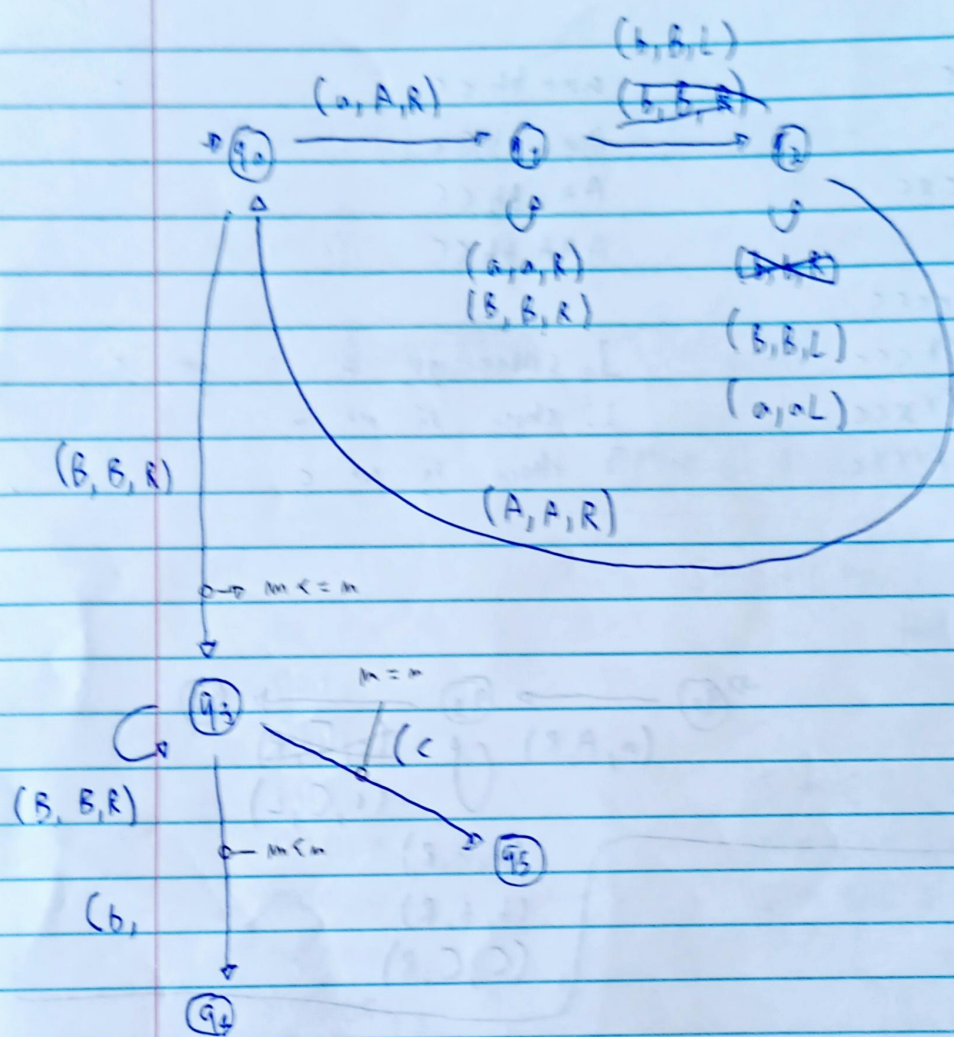 (b, B, L)
(a, A, R)
(b, B, R)
q0
q1
q2
(a, a, R)
(B, B, R)
(B, B, L)
(a, a L)
(B, B, R)
(A, A, R)
m < = n
m = n
q3
(c
(B, B, R)
m < n
q5
(b,
q4